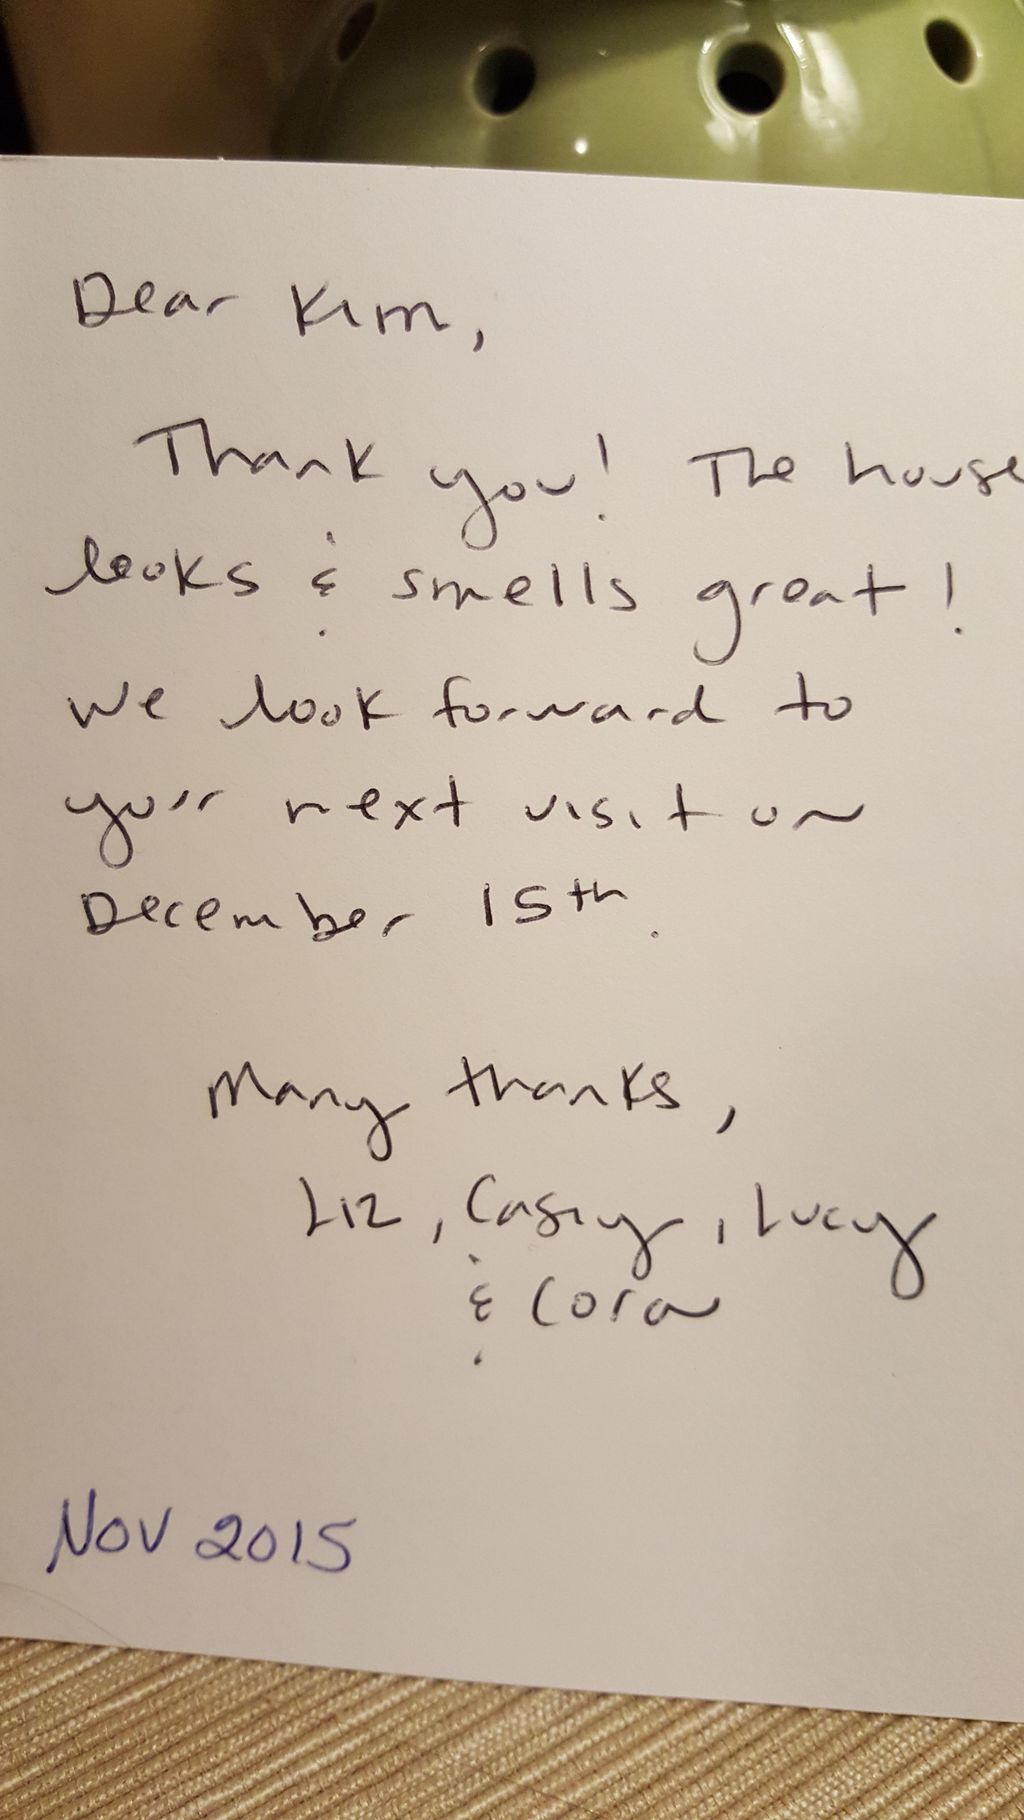 Dear Kim,
Thank you! The house
looks & smells great!
We look forward to
your next visit on
December 15th.
Many thanks,
Liz, Casey, Lucy
& Cora
Nov 2015